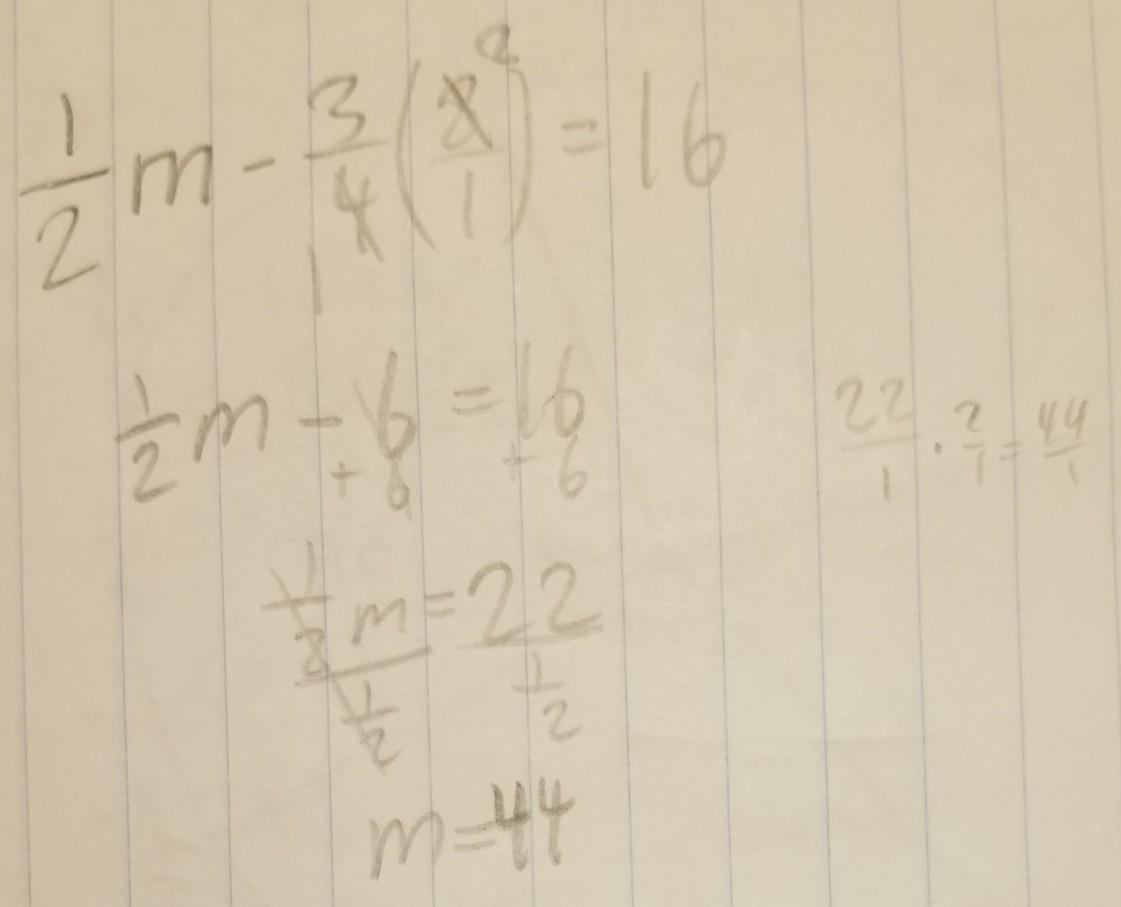 1/2 m - 3/4 (8/1) = 16
2
1
1/2 m - 6 = 16
+ 6 + 6
22/1 · 2/1 = 44/1
1/2 m = 22
1/2 1/2
m = 44